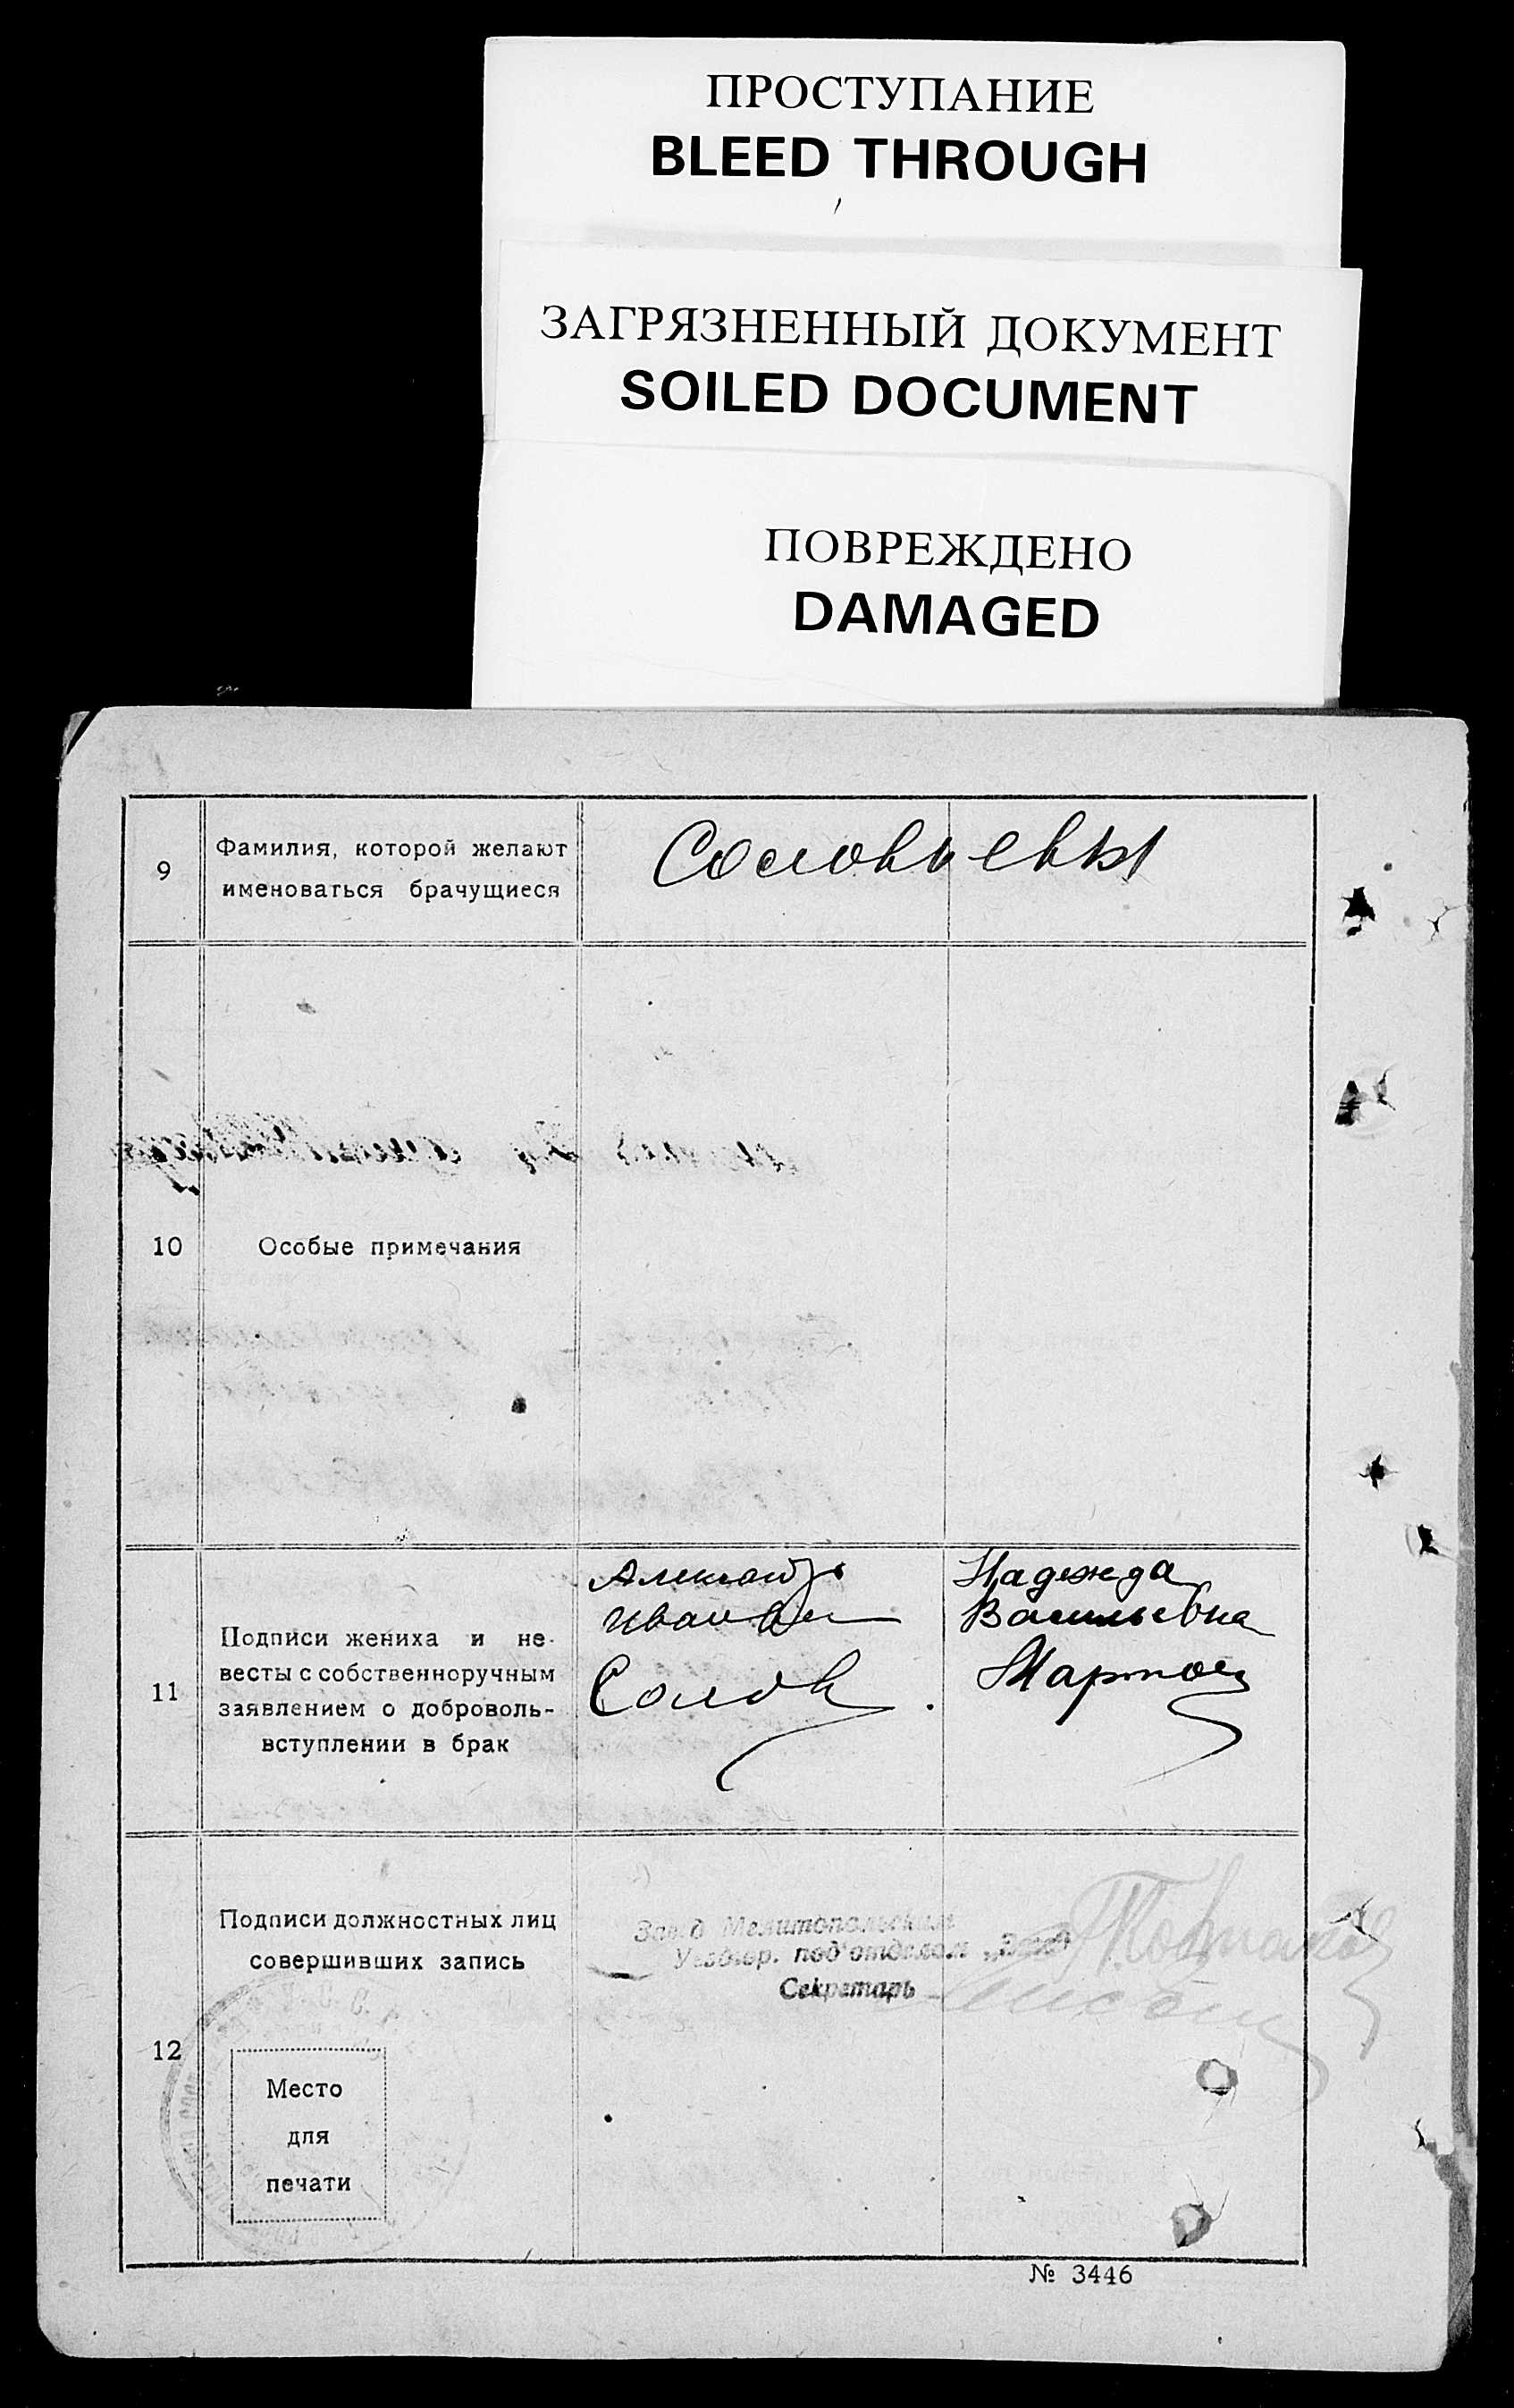 ПРОСТУПАНИЕ
BLEED THROUGH
ЗАГРЯЗНЕННЫЙ ДОКУМЕНТ
SOILED DOCUMENT
ПОВРЕЖДЕНО
DAMAGED
9
Фамилия, которой желают
именоваться брачущиеся
Соловьевы
10
Особые примечания
11
Подписи жениха и не-
весты с собственноручным
заявлением о доброволь-
вступлении в брак
Надежда
Васильевна
12
Подписи должностных лиц
совершивших запись
Зав.д Мелитопольским
под'отделом
Секретарь
Место
для
печати
№ 3446